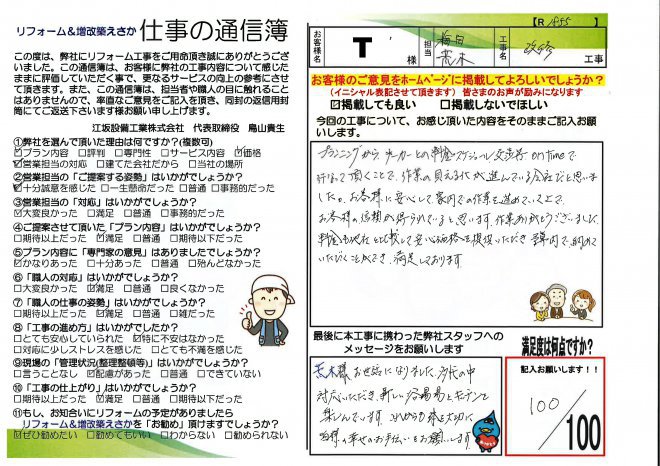 リフォーム&増改築えさか 仕事の通信簿
この度は、弊社にリフォーム工事をご用命頂き誠にありがとうござ
いました。この通信簿は、お客様に弊社の工事内容について感じた
ままに評価していただく事で、更なるサービスの向上の参考にさせ
て頂きます。また、この通信簿は、担当者や職人の目に触れること
はありませんので、率直なご意見をご記入を頂き、同封の返信用封
筒にてご返送下さいます様お願い申し上げます。
江坂設備工業株式会社 代表取締役 鳥山貴生
①弊社を選んで頂いた理由は何ですか?(複数可)
☑プラン内容 □評判 □専門性 □サービス内容 ☑価格
☑営業担当の対応 □建てた会社だから □当社の場所
②営業担当の「ご提案する姿勢」はいかがでしょうか?
☑十分誠意を感じた □一生懸命だった □普通 □事務的だった
③営業担当の「対応」はいかがでしょうか?
☑大変良かった □満足 □普通 □事務的だった
④ご提案させて頂いた「プラン内容」はいかがでしょうか?
□期待以上だった ☑満足 □普通 □期待以下だった
⑤プラン内容に「専門家の意見」はありましたでしょうか?
☑かなりあった □十分あった □普通 □殆んどなかった
⑥「職人の対応」はいかがでしょうか?
□大変良かった ☑満足 □普通 □良くなかった
⑦「職人の仕事の姿勢」はいかがでしょうか?
□期待以上だった ☑満足 □普通 □雑だった
⑧「工事の進め方」はいかがでしたか?
□とても安心していられた ☑特に不安はなかった
□対応に少しストレスを感じた □とても不満を感じた
⑨現場の「管理状況(整理整頓等)」はいかがでしょうか?
□言うことなし ☑配慮があった □普通 □できていない
⑩「工事の仕上がり」はいかがでしょうか?
□期待以上だった ☑満足 □普通 □期待以下だった
⑪もし、お知合いにリフォームの予定がありましたら
リフォーム&増改築えさかを「お勧め」頂けますでしょうか?
☑ぜひ勧めたい □勧めてもいい □わからない □勧められない
【R 1455 】
お客様名 T 様 担当 梅田 荒木 工事名 改修 工事
お客様のご意見をホームページに掲載してよろしいでしょうか?
(イニシャル表記させて頂きます) 皆さまのお声が励みになります
☑掲載しても良い □掲載しないでほしい
今回の工事について、お感じ頂いた内容をそのままご記入お願
いします。
プランニングからメーカーとの料金、スケジュール交渉等 on timeで
行なって頂くことで、作業の見える化が進んでいる会社だと思いま
した。お客様に安心して家内での作業を進めていく上で、
お客様の信頼が得られていると思います。作業ありがとうございました。
料金も他社と比較して安心価格を提援いただき、予算内で納めて
いただくことができ、満足しております。
最後に本工事に携わった弊社スタッフへの
メッセージをお願いします
荒木様お世話になりました。多忙の中
対応いただき、新しい浴場易とモダンを
楽しんでいます。これからも益々大切に
皆様の幸せのお手伝いをお願いします
満足度は何点ですか?
記入お願いします!!
100
/100